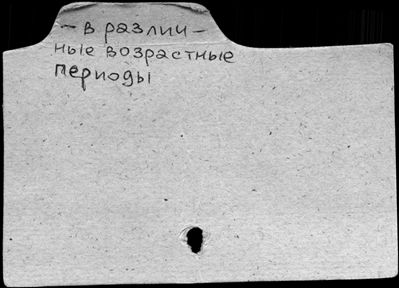 - в различ-
ные возрастные
периоды